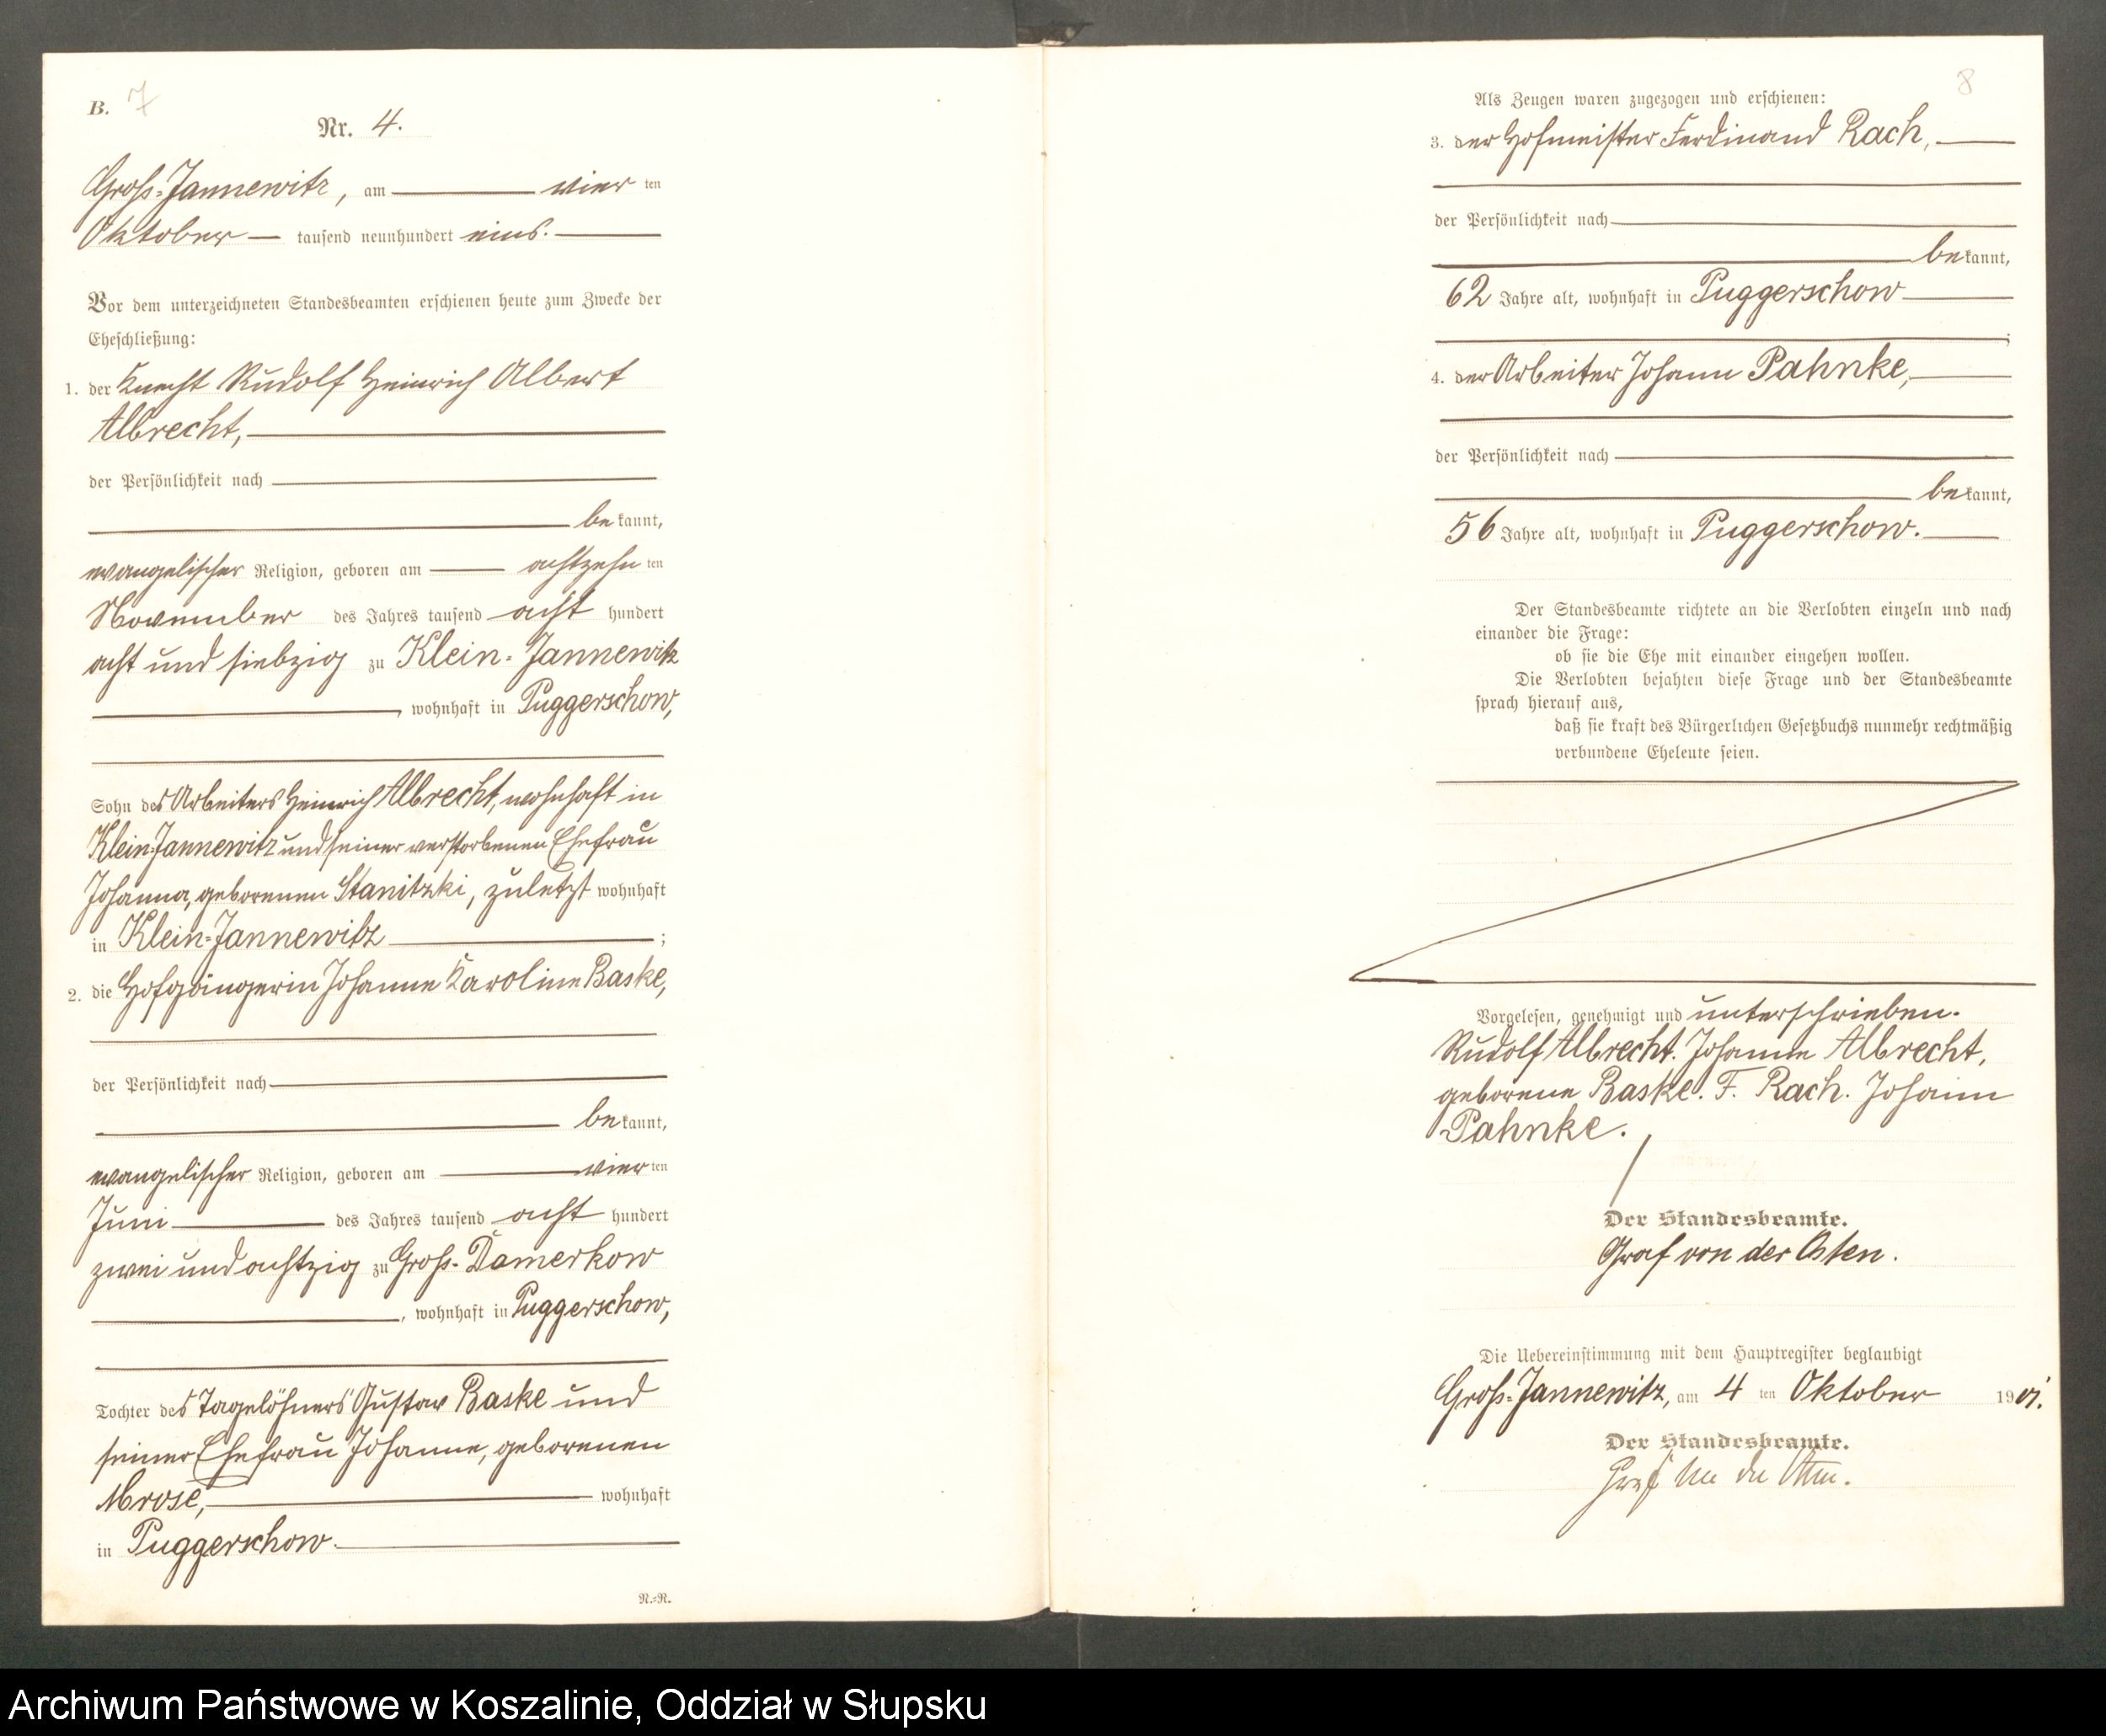 B. 7
Nr. 4.
Groß-Jannewitz, am vier ten
Oktober tausend neunhundert eins.
Vor dem unterzeichneten Standesbeamten erschienen heute zum Zwecke der
Eheschließung:
1. der Knecht Rudolf Heinrich Albert
Albrecht,
der Persönlichkeit nach
be kannt,
evangelischer Religion, geboren am achtzehn ten
November des Jahres tausend acht hundert
acht und siebzig zu Klein-Jannewitz
, wohnhaft in Puggerschow,
Sohn des Arbeiters Heinrich Albrecht, wohnhaft in
Klein-Jannewitz und seiner verstorbenen Ehefrau
Johanna, geborenen Stanitzki, zuletzt wohnhaft
in Klein-Jannewitz ;
2. die Hofgängerin Johanne Karoline Baske,
der Persönlichkeit nach
be kannt,
evangelischer Religion, geboren am vier ten
Juni des Jahres tausend acht hundert
zwei und achtzig zu Groß-Damerkow
, wohnhaft in Puggerschow,
Tochter des Tagelöhners Gustav Baske und
seiner Ehefrau Johanne, geborenen
Mrose, wohnhaft
in Puggerschow.
N.=R.
8
Als Zeugen waren zugezogen und erschienen:
3. der Hofmeister Ferdinand Rach,
der Persönlichkeit nach
be kannt,
62 Jahre alt, wohnhaft in Puggerschow
;
4. der Arbeiter Johann Pahnke,
der Persönlichkeit nach
be kannt,
56 Jahre alt, wohnhaft in Puggerschow.
Der Standesbeamte richtete an die Verlobten einzeln und nach
einander die Frage:
ob sie die Ehe mit einander eingehen wollen.
Die Verlobten bejahten diese Frage und der Standesbeamte
sprach hierauf aus,
daß sie kraft des Bürgerlichen Gesetzbuchs nunmehr rechtmäßig
verbundene Eheleute seien.
Vorgelesen, genehmigt und unterschrieben.
Rudolf Albrecht. Johanne Albrecht,
geborene Baske. F. Rach. Johann
Pahnke.
Der Standesbeamte.
Graf von der Osten.
Die Uebereinstimmung mit dem Hauptregister beglaubigt
Groß-Jannewitz, am 4 ten Oktober 1901.
Der Standesbeamte.
Graf von der Osten.
Archiwum Państwowe w Koszalinie, Oddział w Słupsku